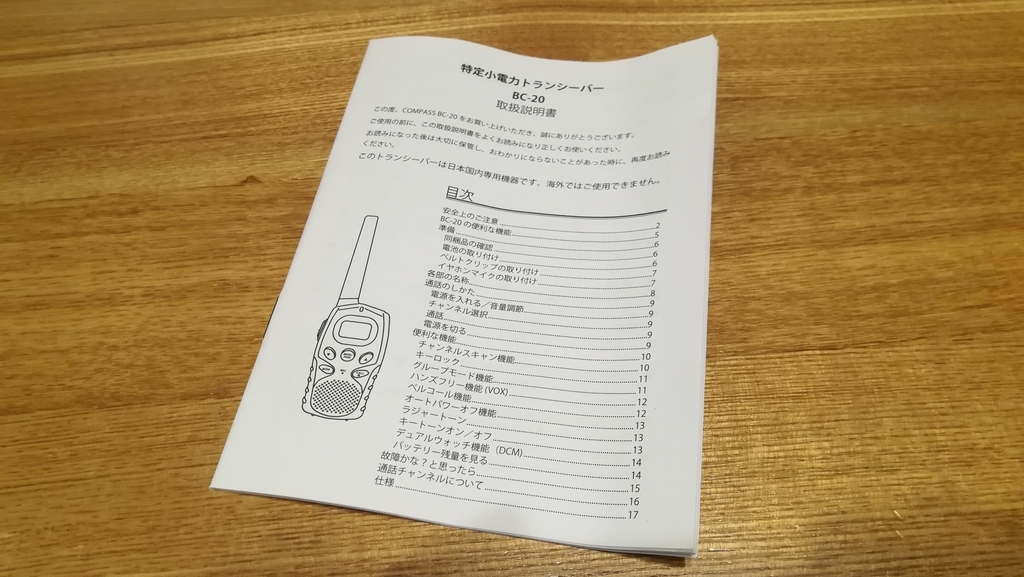 特定小電力トランシーバー
BC-20
取扱説明書
この度、COMPASS BC-20 をお買い上げいただき、誠にありがとうございます。
ご使用の前に、この取扱説明書をよくお読みになり正しくお使いください。
お読みになった後は大切に保管し、おわかりにならないことがあった時に、再度お読み
ください。
このトランシーバーは日本国内専用機器です。海外ではご使用できません。
目次
安全上のご注意 2
BC-20 の便利な機能 5
準備 6
同梱品の確認 6
電池の取り付け 6
ベルトクリップの取り付け 7
イヤホンマイクの取り付け 7
各部の名称 8
通話のしかた 9
電源を入れる／音量調節 9
チャンネル選択 9
通話 9
電源を切る 9
便利な機能 10
チャンネルスキャン機能 10
キーロック 11
グループモード機能 11
ハンズフリー機能 (VOX) 12
ベルコール機能 12
オートパワーオフ機能 13
ラジャートーン 13
キートーンオン／オフ 13
デュアルウォッチ機能（DCM) 14
バッテリー残量を見る 14
故障かな？と思ったら 15
通話チャンネルについて 16
仕様 17